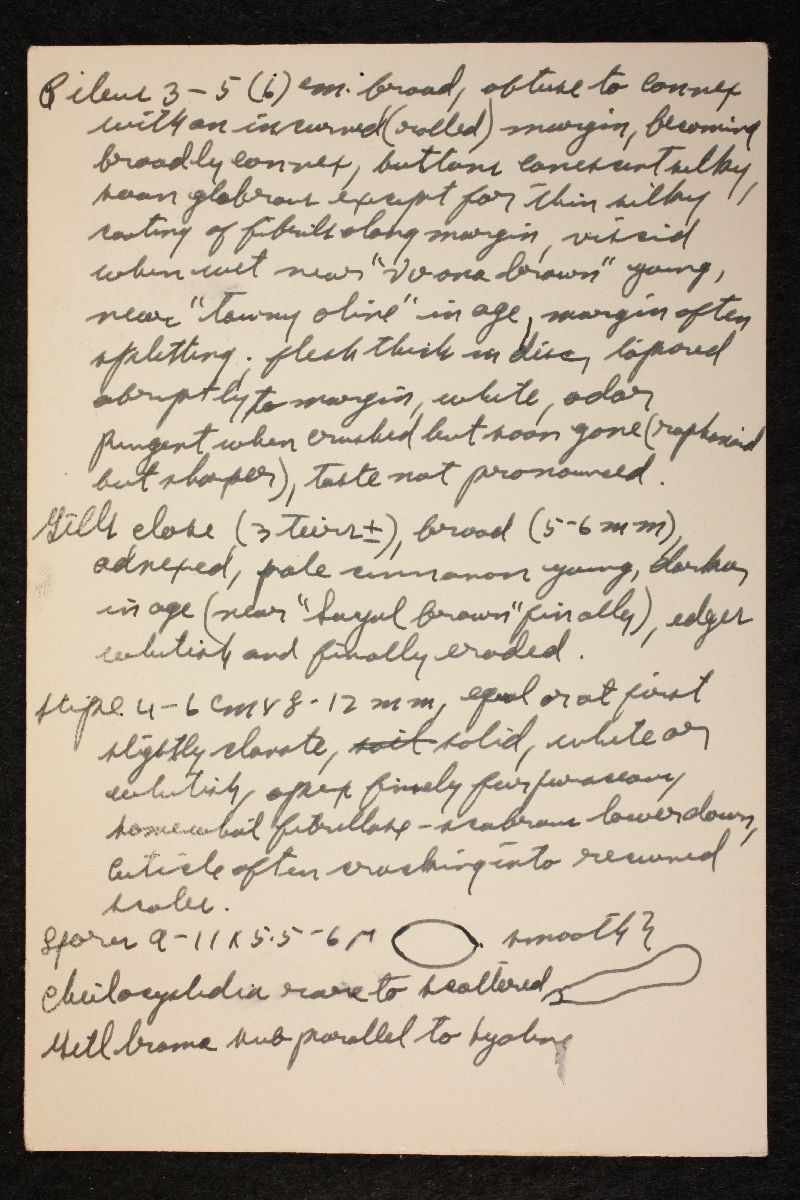 Pileus 3-5 (6) cm. broad, obtuse to convex
with an incurved (rolled) margin, becoming
broadly convex, buttons canescent silky,
soon glabrous except for thin silky
coating of fibrils along margin, viscid
when wet near "Verona brown" young,
near "tawny olive" in age, margin often
splitting; flesh thick in disc, tapered
abruptly to margin, white, odor
pungent when crushed but soon gone (raphanoid
but sharper), taste not pronounced.
Gills close (3 teirs±), broad (5-6 mm),
adnexed, pale cinnamon young, darker
in age (near "Sayal brown" finally), edges
whitish and finally eroded.
Stipe 4-6 cm x 8-12 mm, equal or at first
slightly clavate, solid, white or
whitish, apex finely furfuraceous,
somewhat fibrillose-scabrous lower down,
cuticle often cracking into recurved
scales.
Spores 9-11 x 5.5-6 μ smooth
Cheilocystidia rare to scattered
Gill trama sub parallel to hyaline